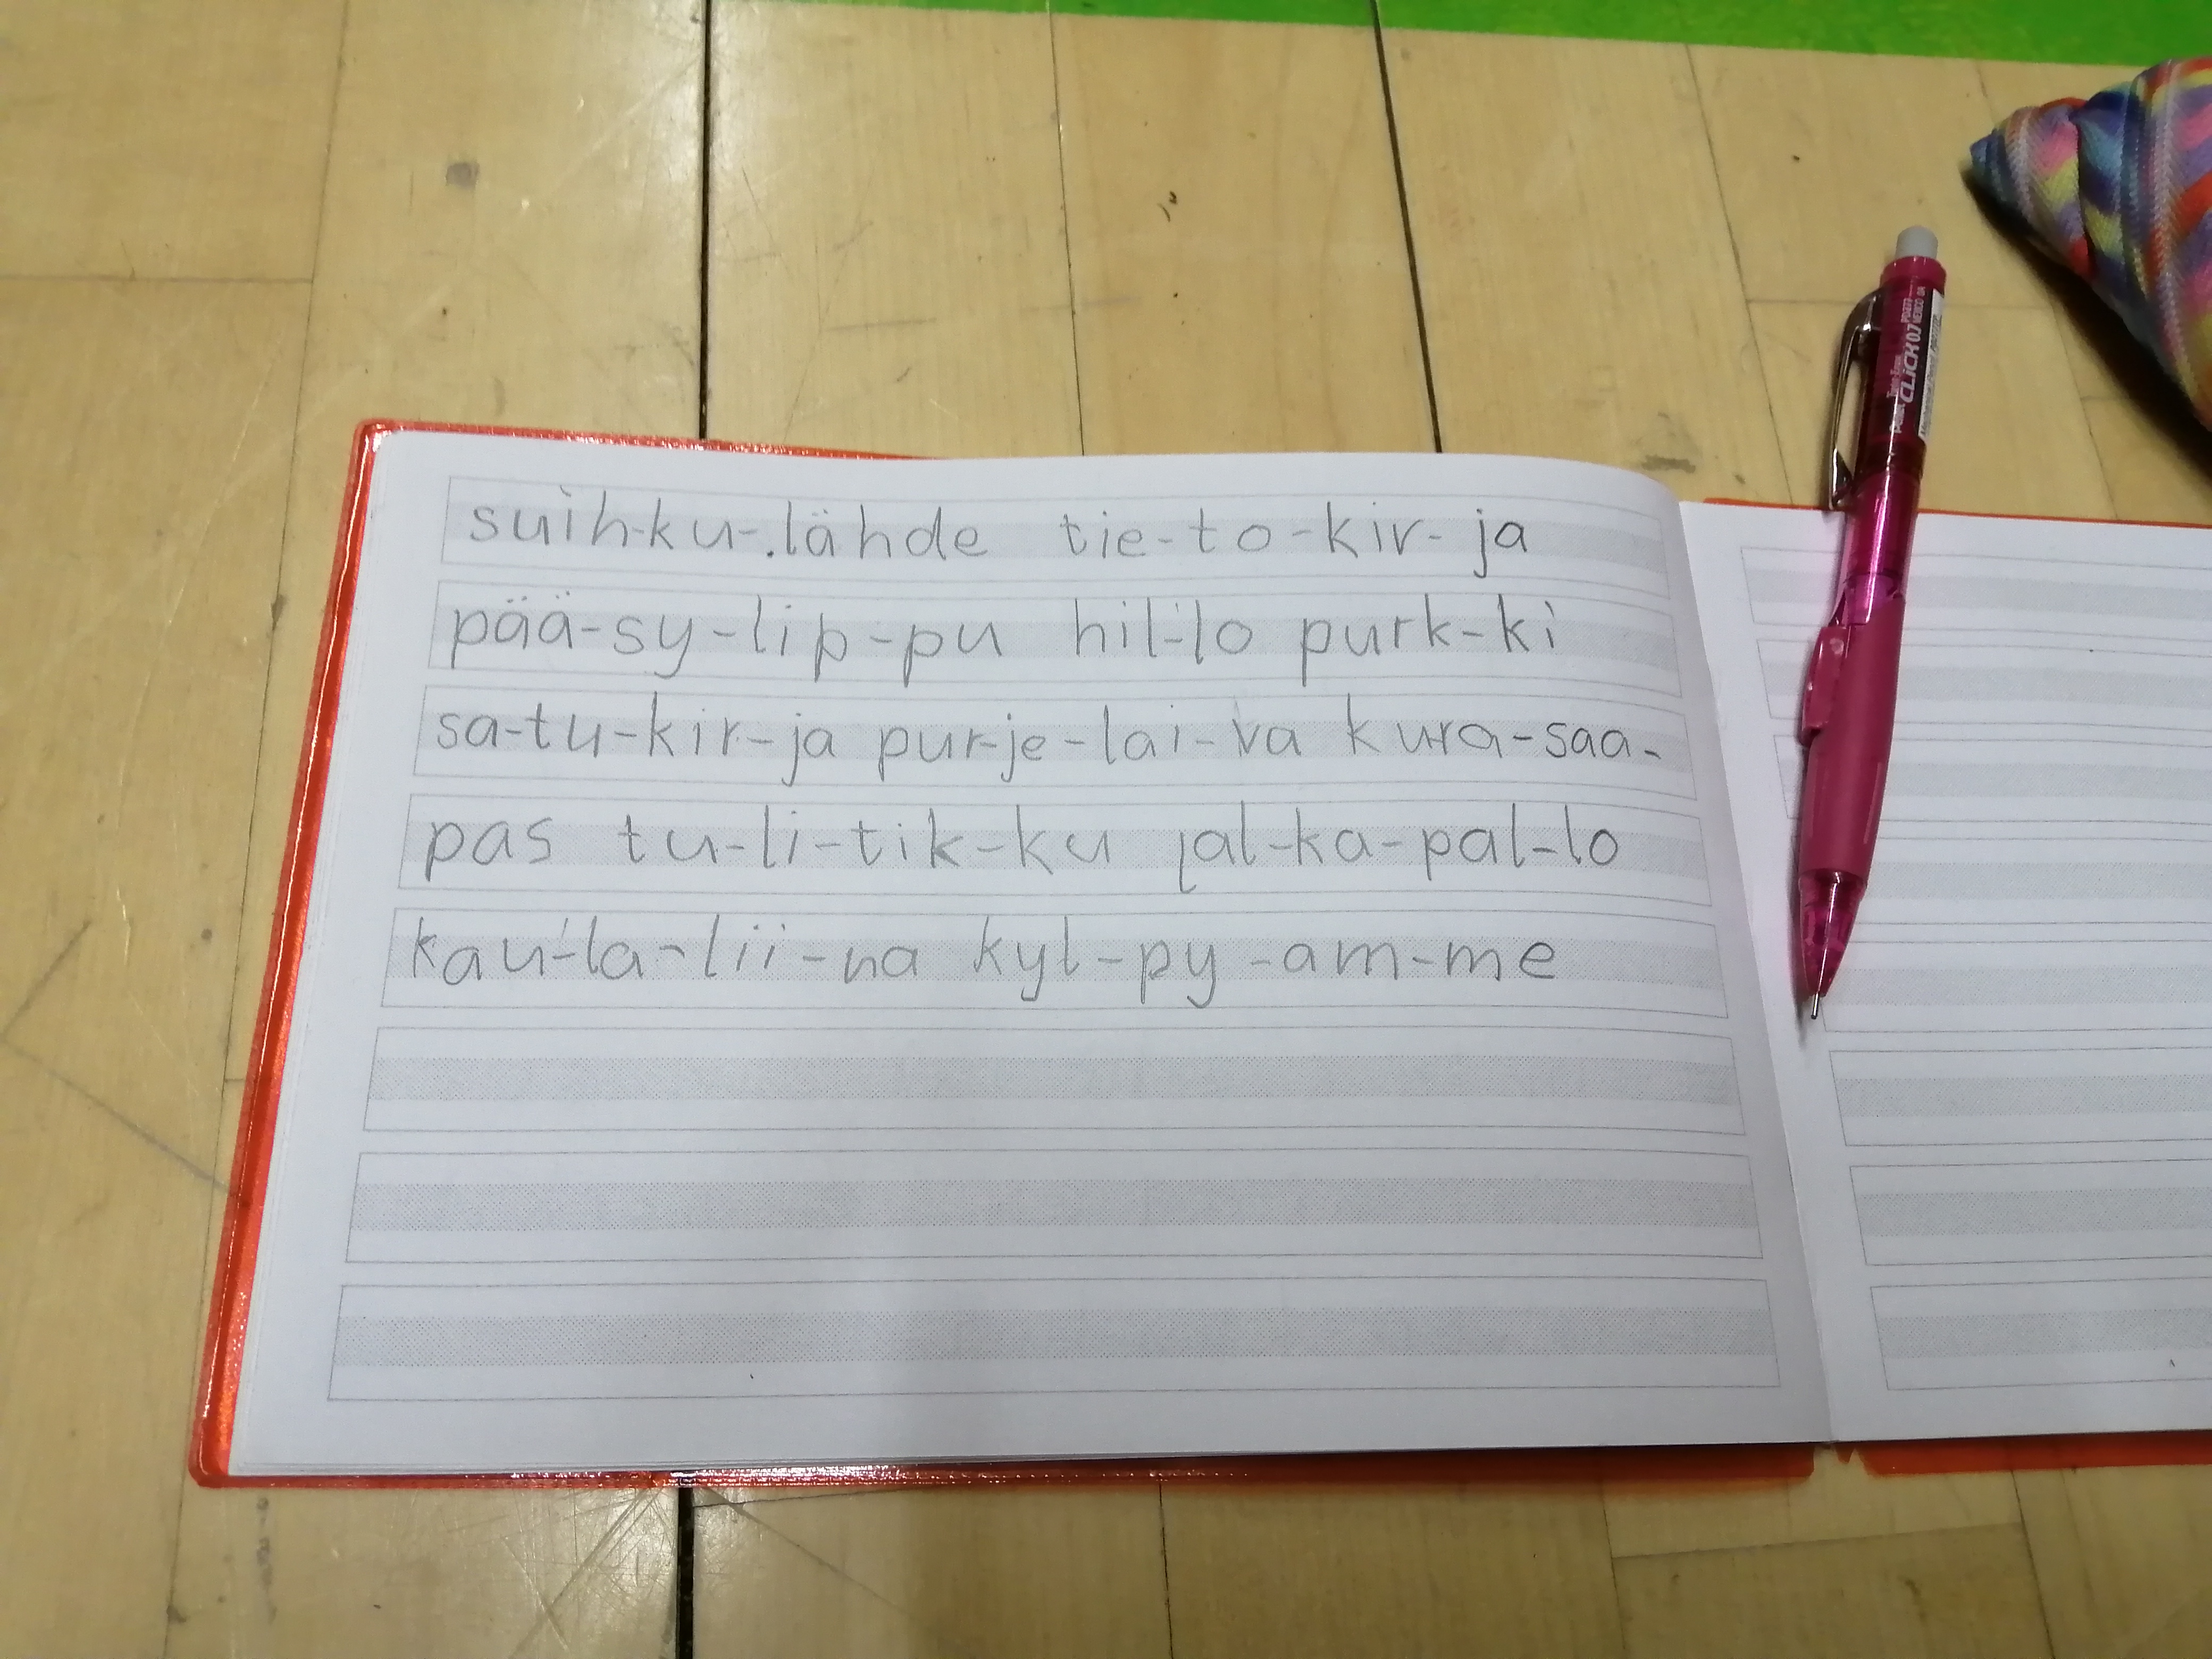 suih-ku-.lähde tie-to-kir-ja
pää-sy-lip-pu hil-lo purk-ki
sa-tu-kir-ja pur-je-lai-va ku-ra-saa-
pas tu-li-tik-ku jal-ka-pal-lo
kau-la-lii-na kyl-py-am-me
CLiCK 0.7
MEXICO